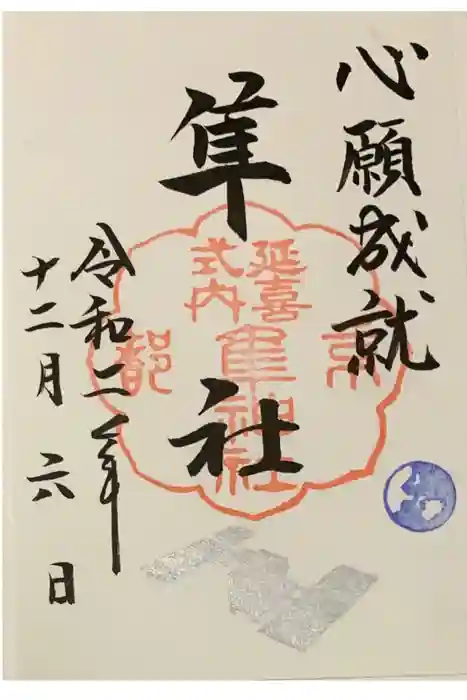 心願成就
隼
社
延喜
式内
隼神社
京
都
令和二年
十二月六日